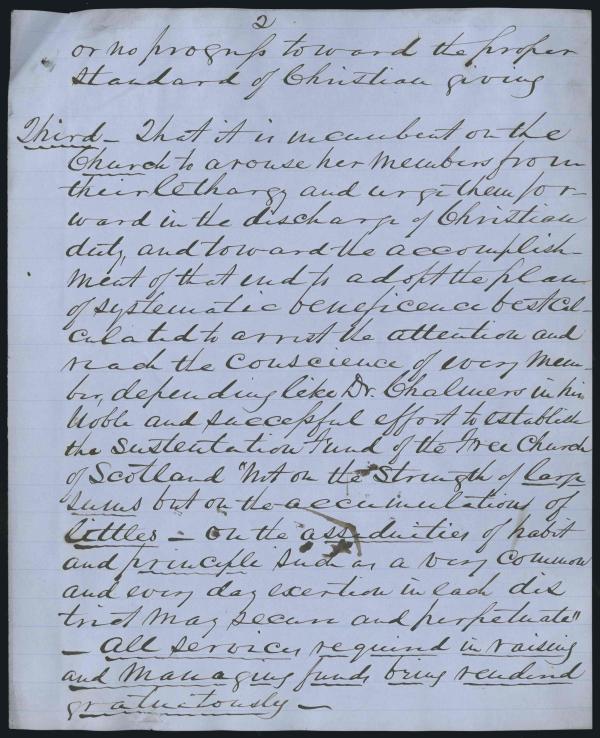 2
or no progress toward the proper
standard of Christian giving
Third - That it is incumbent on the
Church to arouse her members from
their lethargy and urge them for-
ward in the discharge of Christian
duty, and toward the accomplish-
ment of that end to adopt the plan
of systematic beneficence best cal-
culated to arrest the attention and
reach the conscience of every mem-
ber, depending like Dr. Chalmers in his
noble and successful effort to establish
the Sustentation Fund of the Free Church
of Scotland "Not on the strength of large
sums but on the accumulations of
littles - on the assiduities of habit
and principle such as a very common
and every day exertion in each dis
trict may secure and perpetuate"
- All services required in raising
and managing funds being rendered
gratuitously -